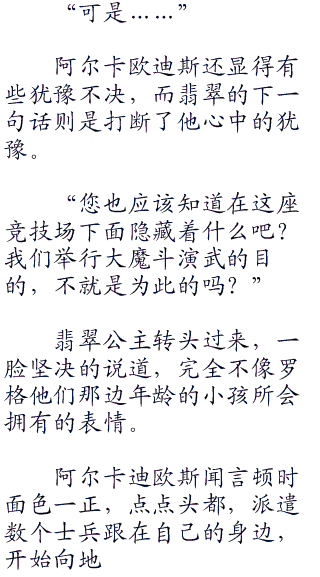 “可是……”
阿尔卡欧迪斯还显得有
些犹豫不决，而翡翠的下一
句话则是打断了他心中的犹
豫。
“您也应该知道在这座
竞技场下面隐藏着什么吧？
我们举行大魔斗演武的目
的，不就是为此的吗？”
翡翠公主转头过来，一
脸坚决的说道，完全不像罗
格他们那边年龄的小孩所会
拥有的表情。
阿尔卡迪欧斯闻言顿时
面色一正，点点头都，派遣
数个士兵跟在自己的身边，
开始向地